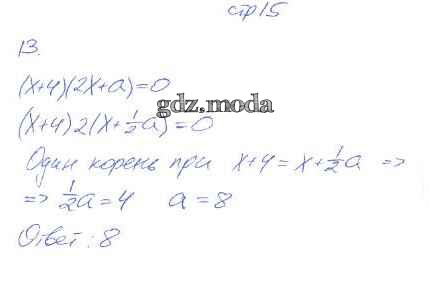 стр 15
13.
(x+4)(2x+a)=0
(x+4)2(x+½a)=0
gdz.moda
Один корень при x+4=x+½a =>
=> ½a=4 a=8
Ответ: 8